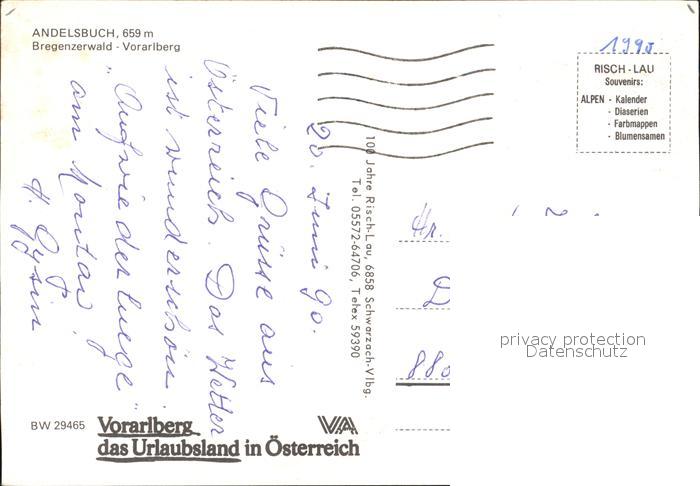 ANDELSBUCH, 659 m
Bregenzerwald - Vorarlberg
1990
RISCH - LAU
Souvenirs:
ALPEN - Kalender
- Diaserien
- Farbmappen
- Blumensamen
20. Juni 90.
Viele Grüsse aus
Österreich. Das Wetter
ist wunderschön.
"Aufwiederluege"
am Montag!
H. Gysin
100 Jahre Risch-Lau, 6858 Schwarzach-Vlbg.
Tel. 05572-64706, Telex 59390
Hr.
D
880
privacy protection
Datenschutz
BW 29465
Vorarlberg
das Urlaubsland in Österreich
VA